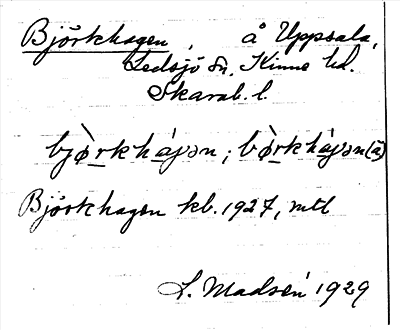 Björkhagen, å Uppsala,
Ledsjö sn, Kinne hd.
Skarab. l.
bjø̀rkhágən; bø̀rkhágən(ä)
Björkhagen kb. 1927, mtl
L. Madsén 1929